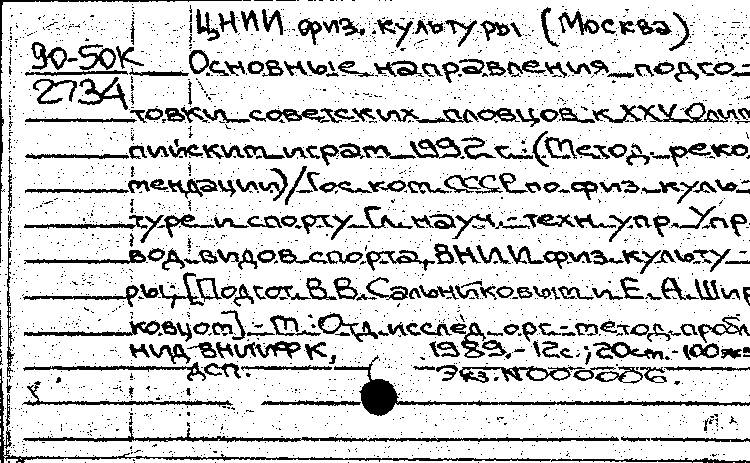 ЦНИИ физ. культуры (Москва)
90-50К
Основные направления подго-
2734
товки советских пловцов к XXV Олим
пийским играм 1992 г.: (Метод. реко
мендации)/Гос. ком. СССР по физ. куль-
туре и спорту. Гл. науч.-техн. упр. Упр
вод. видов спорта, ВНИИ физ. культу-
ры; [Подгот. В.В. Сальниковым и Е.А. Шир
ковцом].- М.: Отд. исслед. орг.-метод. пробл
НИД ВНИИФК, 1989.- 12с.; 20см.- 100экз
ДСП. Экз. N000006.